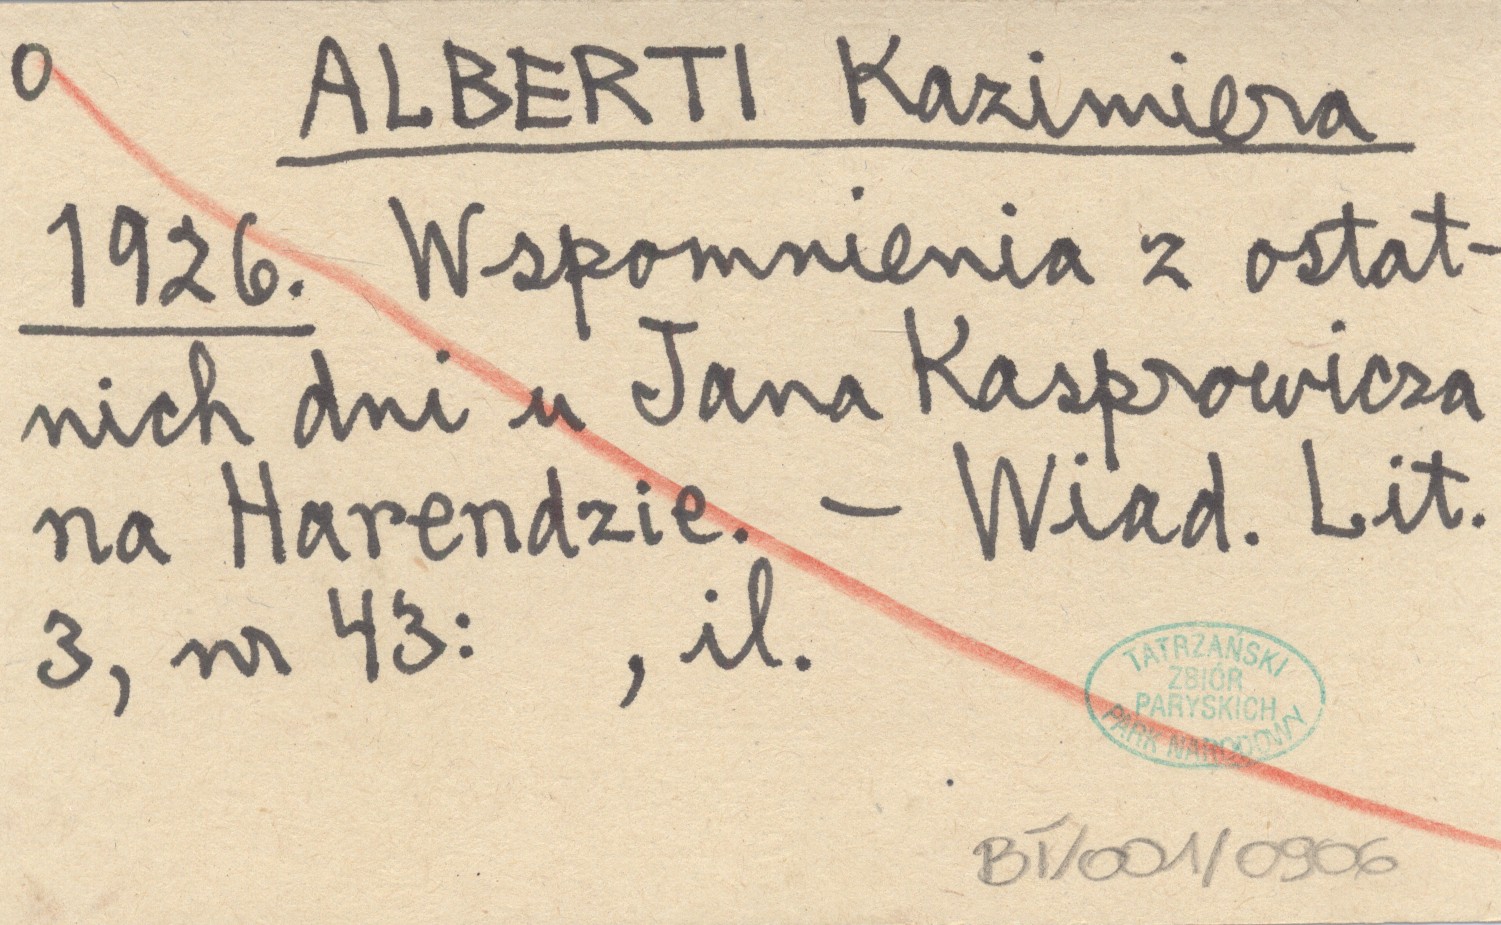 O ALBERTI Kazimiera
1926. Wspomnienia z ostat-
nich dni u Jana Kasprowicza
na Harendzie. – Wiad. Lit.
3, nr 43: , il.
TATRZAŃSKI
ZBIÓR
PARYSKICH
PARK NARODOWY
BT/001/0906